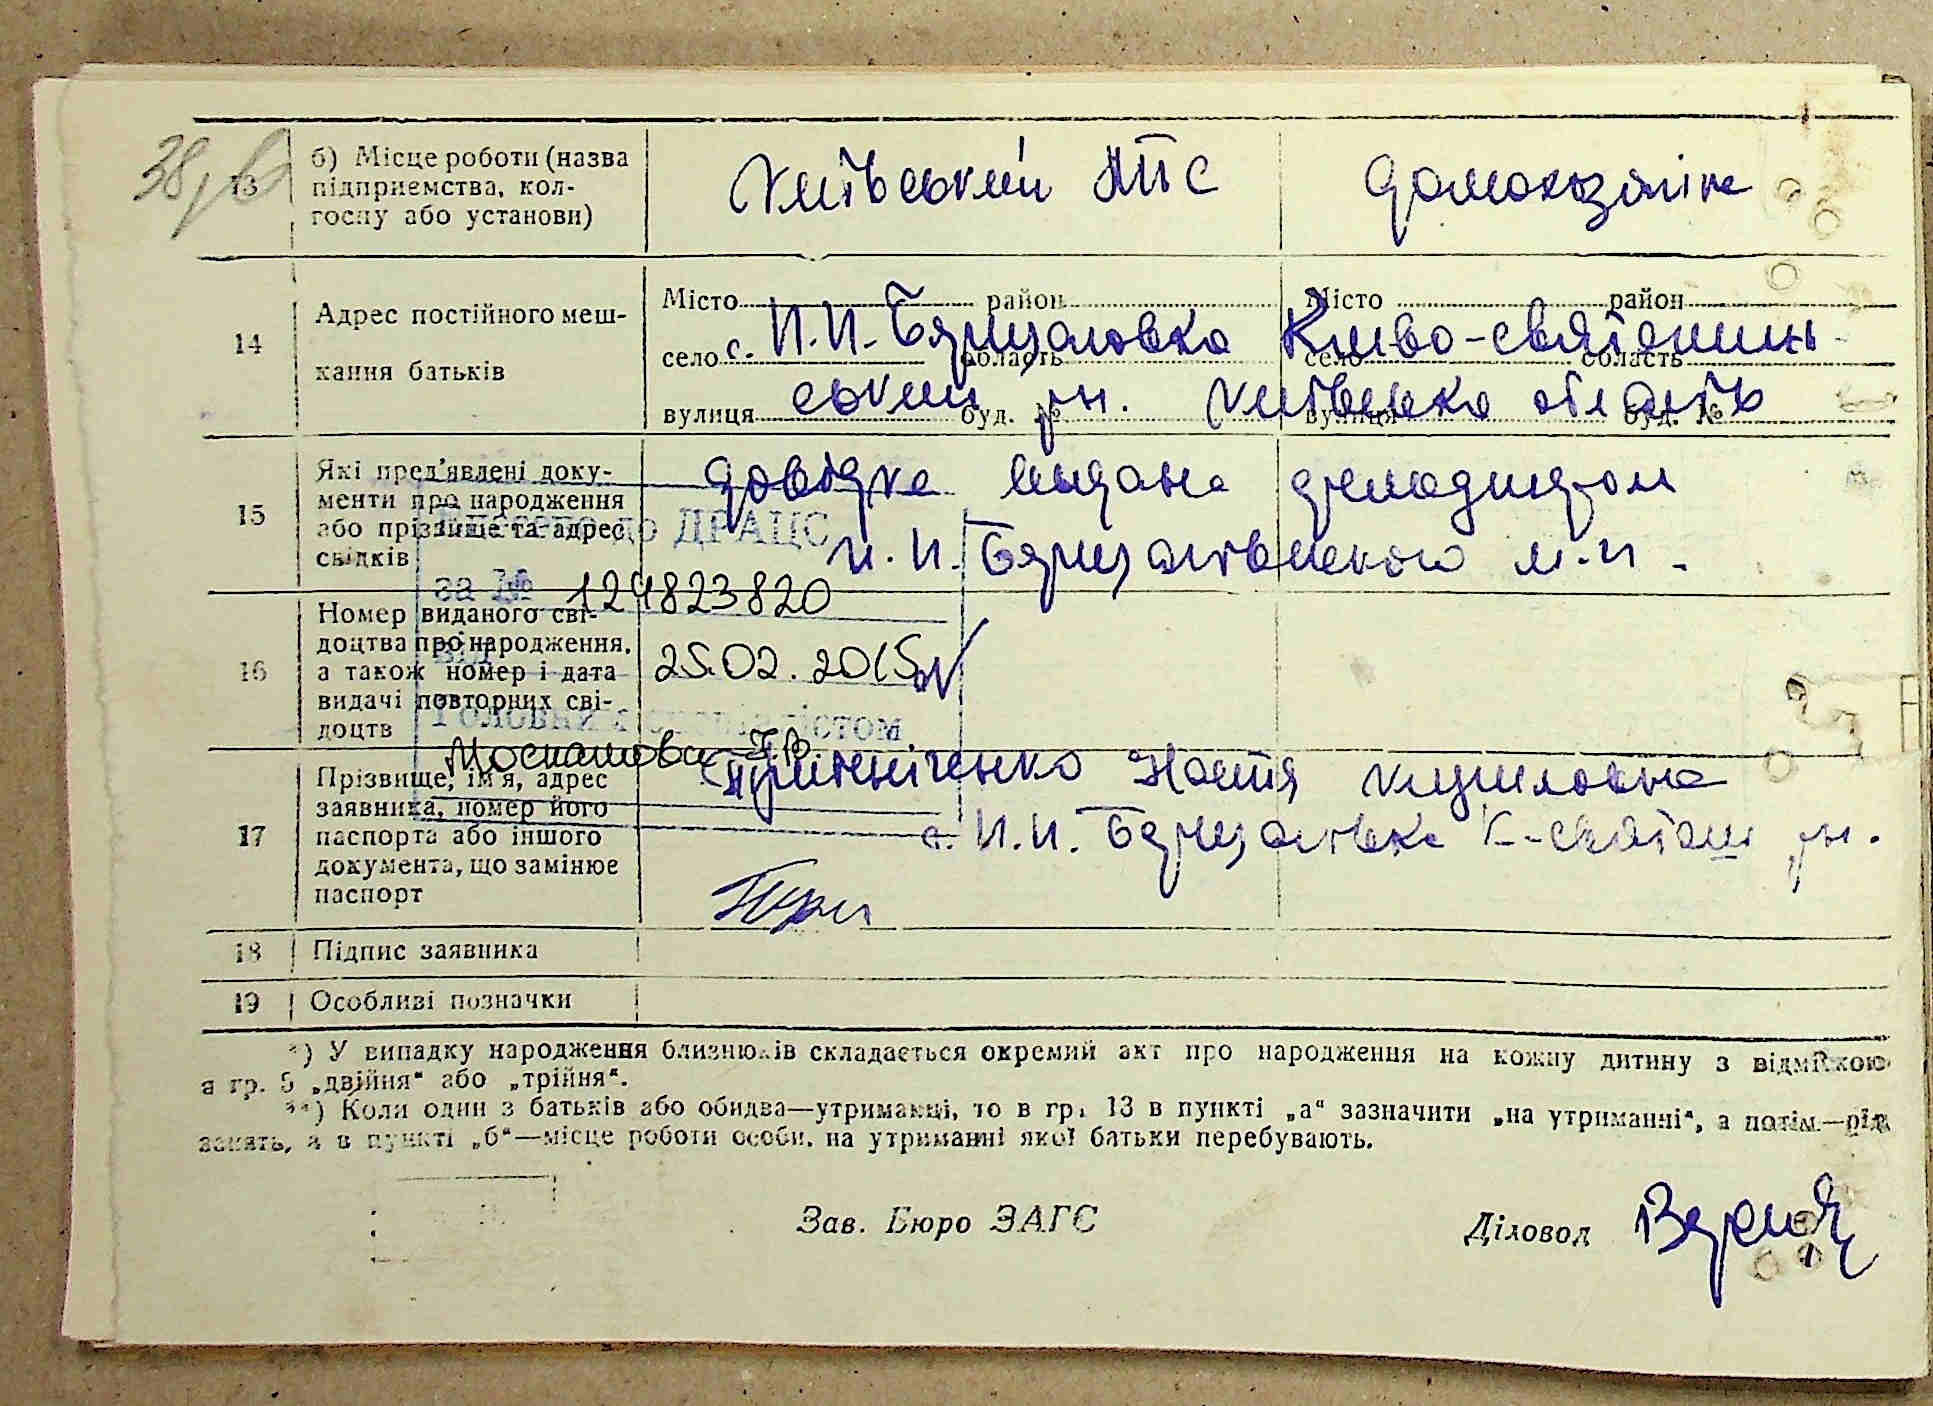 38
13 б) Місце роботи (назва підприемства, колгоспу або установи) Київський МТС домохозяїка
14 Адрес постійного мешкання батьків
Місто район Місто район
село с. П.П.-Борщаговка область Києво-святошин-
село область
вулиця ський рн. Київська область буд. №
вулиця буд. №
15 Які пред'явлені документи про народження або прізвище та адрес свідків
довідка видана
П.П. Борщаговського
до ДРАЦС
за № 124823820
16 Номер виданого свідоцтва про народження, а також номер і дата видачі повторних свідоцтв
від 25.02.2015
Головним спеціалістом
17 Прізвище, ім'я, адрес заявника, номер його паспорта або іншого документа, що замінює паспорт
Настя Кириловна
с. П.П. Борщаговка К-святош рн.
18 Підпис заявника
19 Особливі позначки
*) У випадку народження близнюків складається окремий акт про народження на кожну дитину з відміткою
в гр. 5 „двійня“ або „трійня“.
**) Коли один з батьків або обидва—утриманці, то в гр. 13 в пункті „а“ зазначити „на утриманні“, а потім—рід
занять, а в пункті „б“—місце роботи особи, на утриманні якої батьки перебувають.
Зав. Бюро ЗАГС Діловод